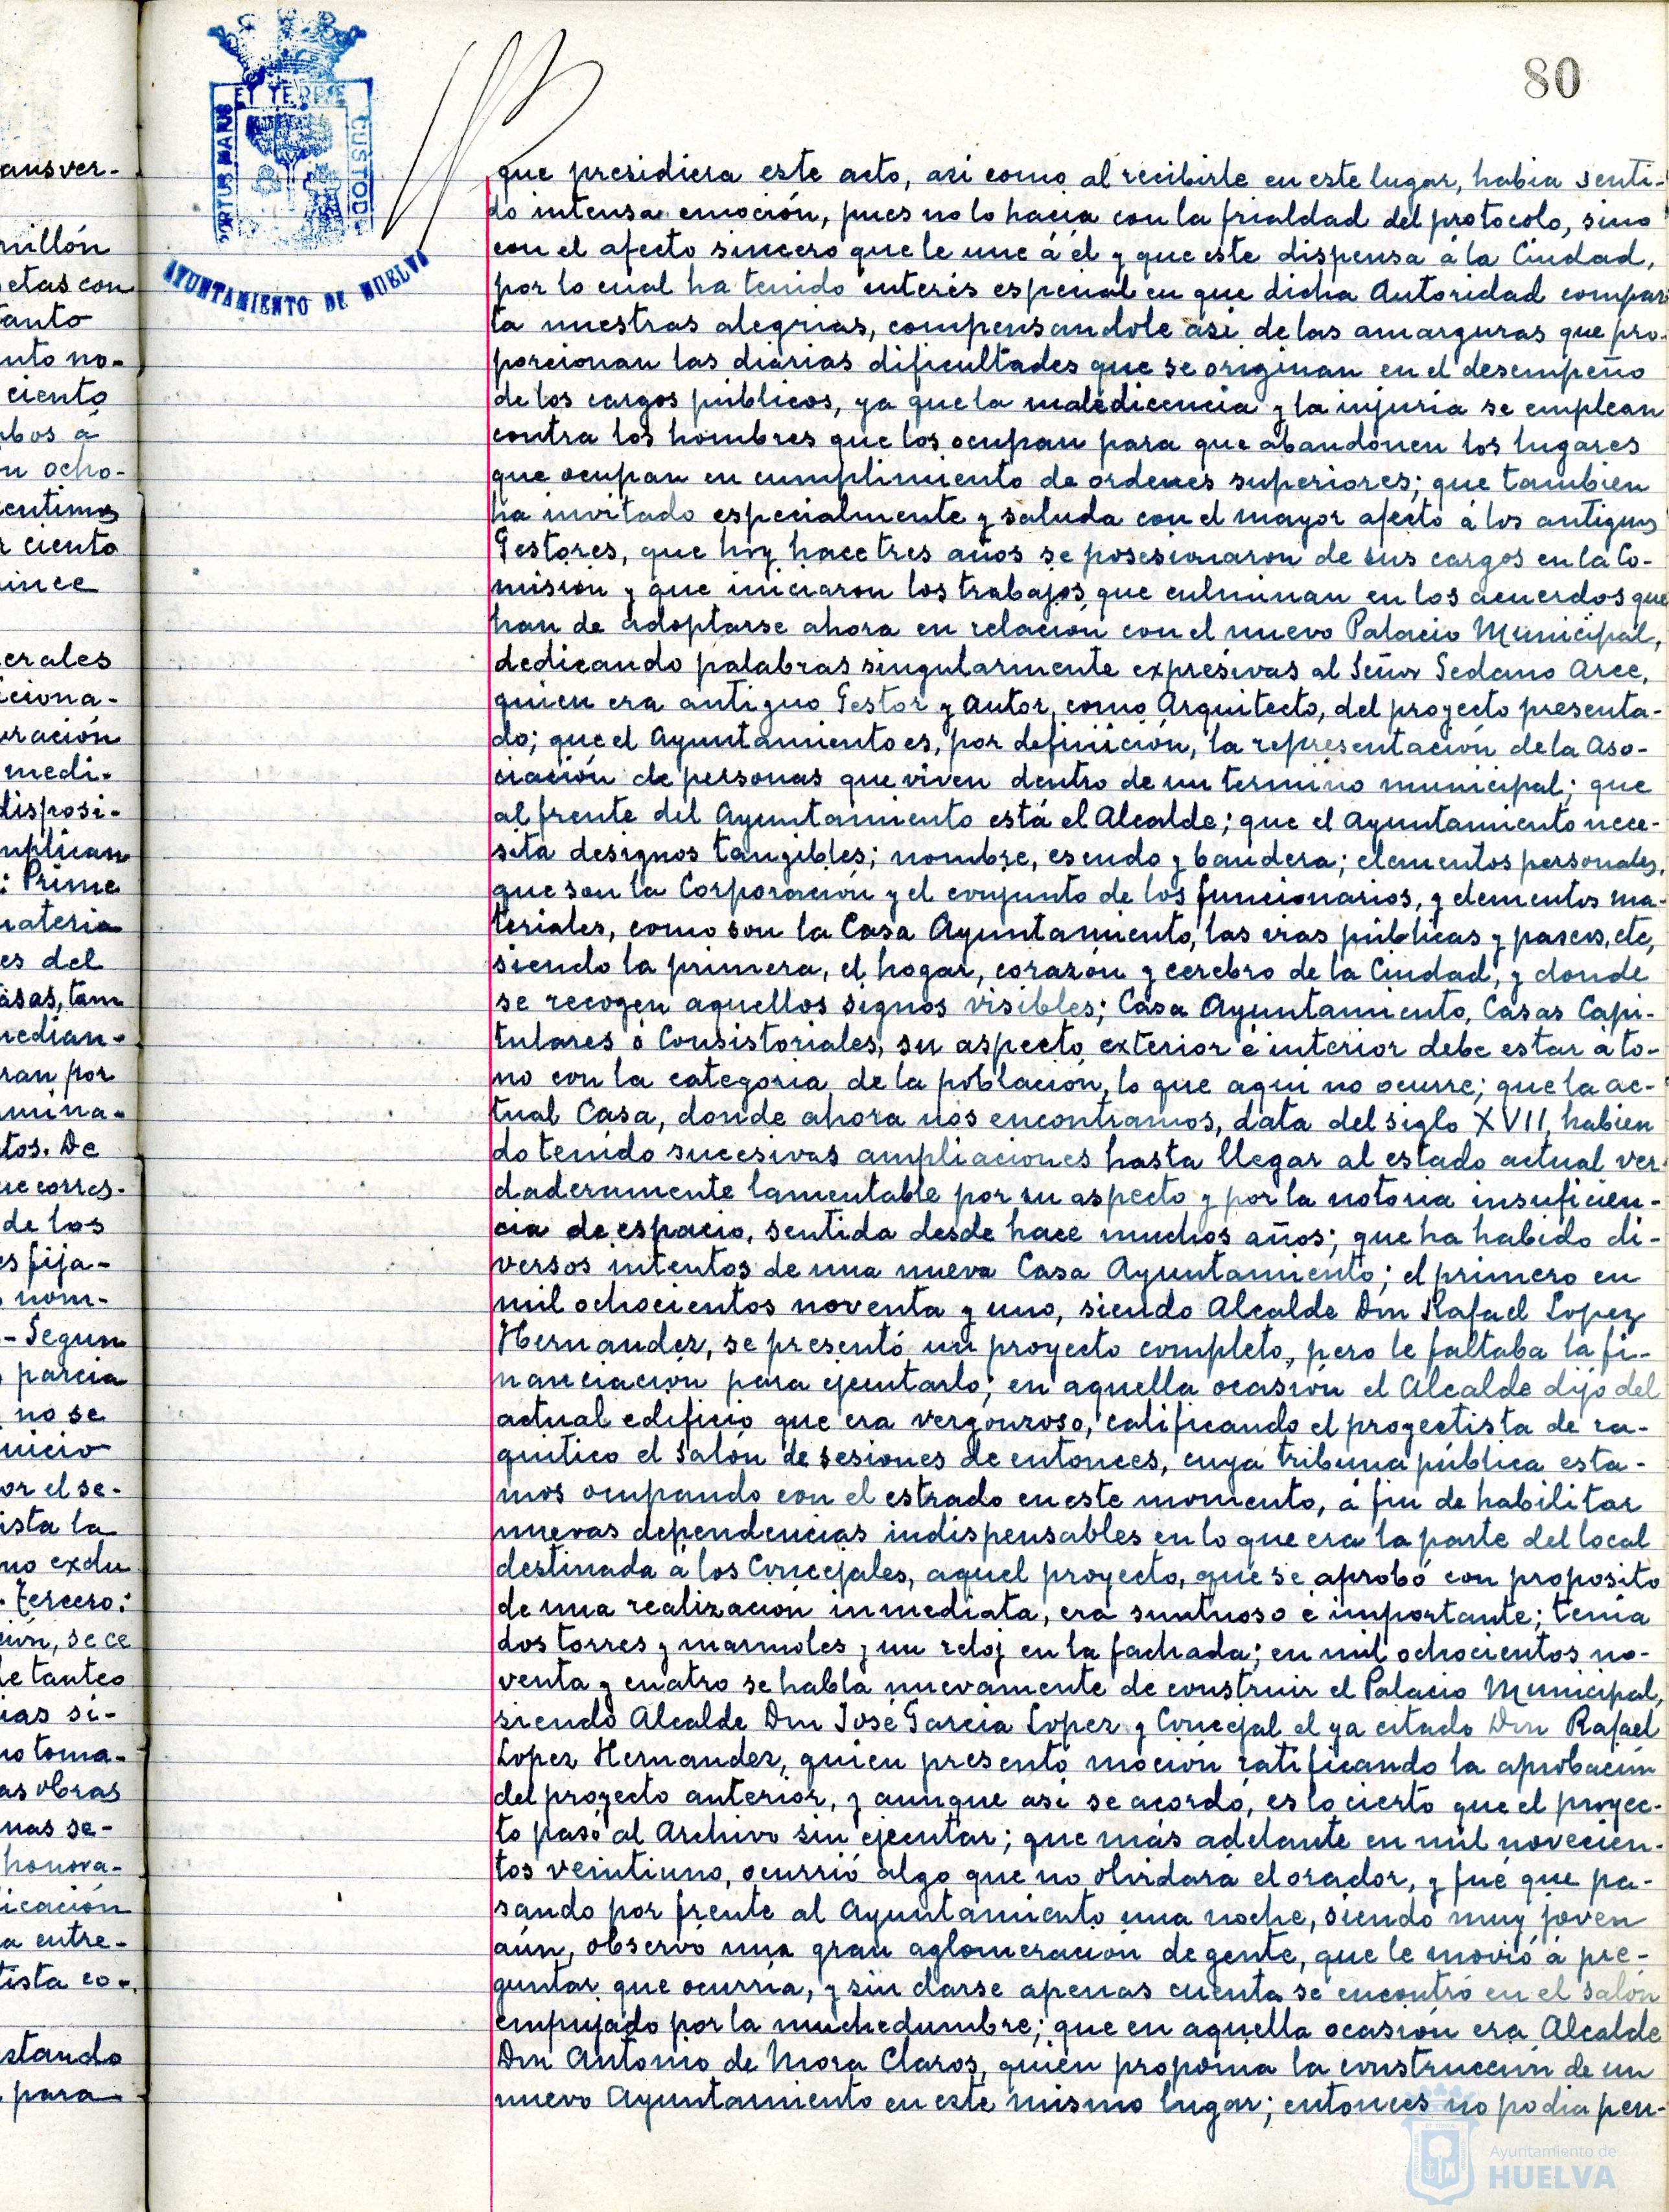 ausver-
millón
etas con
anto
nto no-
ciento
bos á
n ocho-
centimos
r ciento
ince
erales
iciona-
ración
medi-
disposi-
mplican
: Prime
materia
es del
asas, tam
median-
ran por
mina-
tos. De
ue corres-
de los
es fija-
nom-
- Segun
parcia
no se
nicio
or el se-
ista la
no exclu
- tercero:
ión, se ce
de tanteo
ias si-
no toma-
as obras
mas se-
honora-
icación
a entre-
tista co-
stando
para
80
PORTUS MARIS ET TERRE CUSTOD
AYUNTAMIENTO DE HUELVA
que presidiera este acto, asi como al recibirle en este lugar, habia senti-
do intensa emoción, pues no lo hacia con la frialdad del protocolo, sino
con el afecto sincero que le une á él y que este dispensa á la Ciudad,
por lo cual ha tenido interés especial en que dicha Autoridad compar
ta nuestras alegrias, compensandole asi de las amarguras que pro-
porcionan las diarias dificultades que se originan en el desempeño
de los cargos públicos, ya que la maledicencia y la injuria se emplean
contra los hombres que los ocupan para que abandonen los lugares
que ocupan en cumplimiento de ordenes superiores; que tambien
ha invitado especialmente y saluda con el mayor afecto á los antiguos
Gestores, que hoy hace tres años se posesionaron de sus cargos en la Co-
misión y que iniciaron los trabajos que culminan en los acuerdos que
han de adoptarse ahora en relación con el nuevo Palacio Municipal,
dedicando palabras singularmente expresivas al Señor Sedano Arce,
quien era antiguo Gestor y Autor, como Arquitecto, del proyecto presenta-
do; que el Ayuntamiento es, por definición, la representación de la Aso-
ciación de personas que viven dentro de un termino municipal; que
al frente del Ayuntamiento está el Alcalde; que el Ayuntamiento nece-
sita designos tangibles; nombre, escudo y bandera; elementos personales,
que son la Corporación y el conjunto de los funcionarios, y elementos ma-
teriales, como son la Casa Ayuntamiento, las vias públicas y paseos, etc,
siendo la primera, el hogar, corazón y cerebro de la Ciudad, y donde
se recogen aquellos signos visibles; Casa Ayuntamiento, Casas Capi-
tulares ó Consistoriales, su aspecto exterior é interior debe estar á to-
no con la categoria de la población, lo que aqui no ocurre; que la ac-
tual Casa, donde ahora nos encontramos, data del siglo XVII, habien
do tenido sucesivas ampliaciones hasta llegar al estado actual ver-
daderamente lamentable por su aspecto y por la notoria insuficien-
cia de espacio, sentida desde hace muchos años; que ha habido di-
versos intentos de una nueva Casa Ayuntamiento; el primero en
mil ochocientos noventa y uno, siendo Alcalde Don Rafael Lopez
Hernandez, se presentó un proyecto completo, pero le faltaba la fi-
nanciación para ejecutarlo; en aquella ocasión el Alcalde dijo del
actual edificio que era vergonzoso, calificando el proyectista de ra-
quitico el salón de sesiones de entonces, cuya tribuna pública esta-
mos ocupando con el estrado en este momento, á fin de habilitar
nuevas dependencias indispensables en lo que era la parte del local
destinada á los Concejales, aquel proyecto, que se aprobó con proposito
de una realización inmediata, era suntuoso é importante; tenia
dos torres y marmoles y un reloj en la fachada; en mil ochocientos no-
venta y cuatro se habla nuevamente de construir el Palacio Municipal,
siendo Alcalde Don José Garcia Lopez y Concejal el ya citado Don Rafael
Lopez Hernandez, quien presentó moción ratificando la aprobación
del proyecto anterior, y aunque asi se acordó, es lo cierto que el proyec-
to pasó al Archivo sin ejecutar; que más adelante en mil novecien-
tos veintiuno, ocurrió algo que no olvidará el orador, y fué que pa-
sando por frente al Ayuntamiento una noche, siendo muy joven
aún, observó una gran aglomeración de gente, que le movió á pre-
guntar que ocurria, y sin darse apenas cuenta se encontró en el salón
empujado por la muchedumbre; que en aquella ocasión era Alcalde
Don Antonio de Mora Claros, quien proponia la construcción de un
nuevo Ayuntamiento en este mismo lugar; entonces no podia pen-
Ayuntamiento de
HUELVA